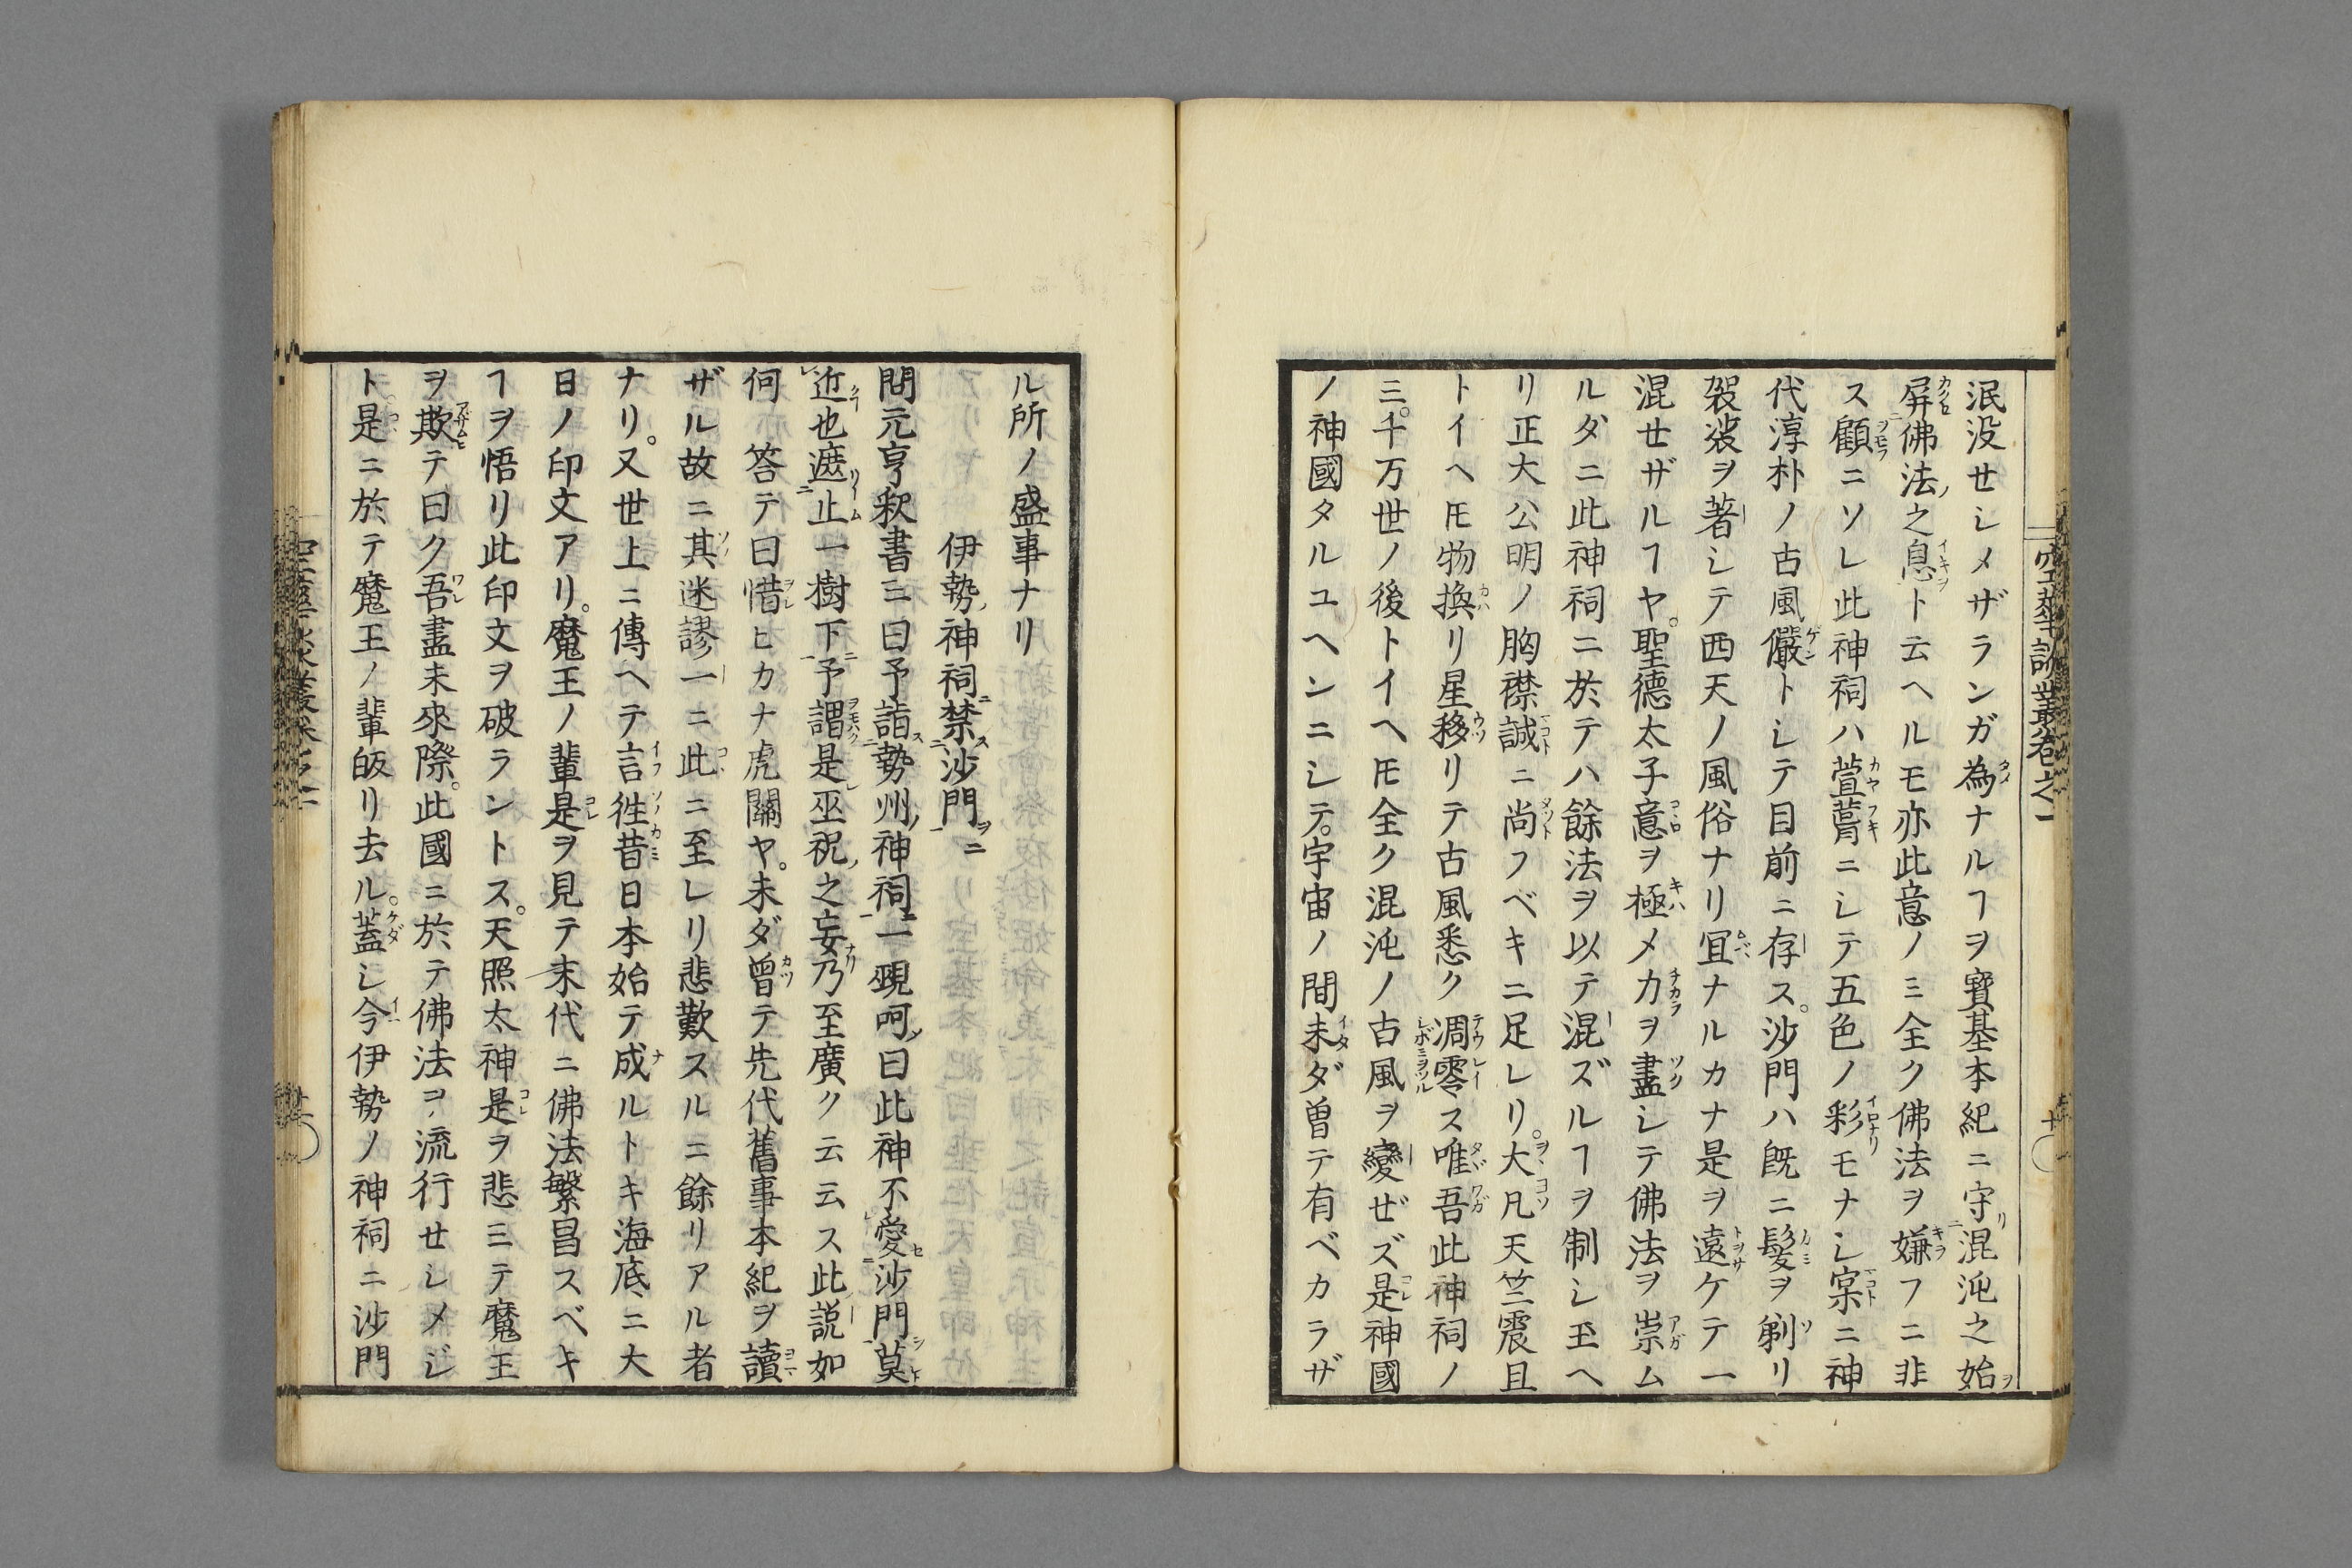 泯没セシメザランガ為ナルヿヲ寳基本紀ニ守混沌之始
屏佛法之息ト云ヘルモ亦此意ノミ全ク佛法ヲ嫌フニ非
ス顧ニソレ此神祠ハ萱葺ニシテ五色ノ彩モナシ寔ニ神
代淳朴ノ古風儼トシテ目前ニ存ス。沙門ハ既ニ髪ヲ剃リ
袈裟ヲ著シテ西天ノ風俗ナリ冝ナルカナ是ヲ遠ケテ一
混セザルヿヤ。聖德太子意ヲ極メ力ヲ盡シテ佛法ヲ崇ム
ルダニ此神祠ニ於テハ餘法ヲ以テ混ズルヿヲ制シ玉ヘ
リ正大公明ノ胸襟誠ニ尚フベキニ足レリ。大凡天竺震旦
トイヘ𪜈物換リ星移リテ古風悉ク凋零ス唯吾此神祠ノ
ミ。千万世ノ後トイヘ𪜈全ク混沌ノ古風ヲ變ぜズ是神國
ノ神國タルユヘンニシテ。宇宙ノ間未ダ曽テ有ベカラザ
ル所ノ盛事ナリ
伊勢神祠禁沙門
問元亨釈書ニ曰予詣勢州神祠一覡呵曰此神不愛沙門莫
近也遮止一樹下予謂是巫祝之妄乃至廣ク云云ス此説如
何 答テ曰惜ヒカナ虎關ヤ。未ダ曽テ先代舊事本紀ヲ讀
ザル故ニ其迷謬一ニ此ニ至レリ悲歎スルニ餘リアル者
ナリ。又世上ニ傳ヘテ言徃昔日本始テ成ルトキ海底ニ大
日ノ印文アリ。魔王ノ輩是ヲ見テ末代ニ佛法繁昌スベキ
ヿヲ悟リ此印文ヲ破ラントス。天照太神是ヲ悲ミテ魔王
ヲ欺テ曰ク吾盡未來際。此國ニ於テ佛法ヲ流行セシメジ
ト是ニ於テ魔王ノ輩皈リ去ル。蓋シ今伊勢ノ神祠ニ沙門